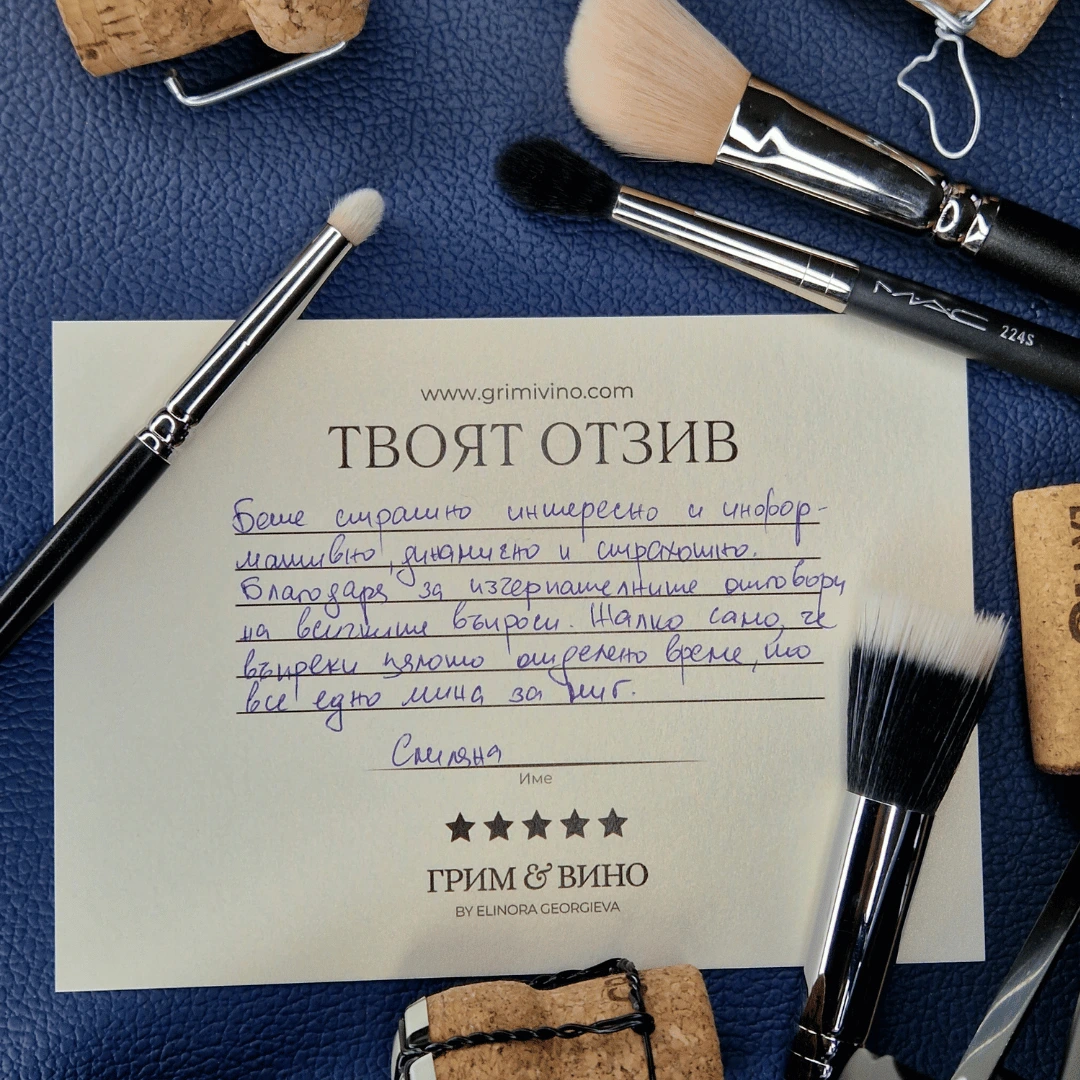 MAC 224S
www.grimivino.com
ТВОЯТ ОТЗИВ
Беше страшно интересно и инфор-
мативно, динамично и страхотно.
Благодаря за изчерпателните отговори
на всичките въпроси. Жалко само, че
въпреки цялото отделено време, то
все едно мина за миг.
Смиляна
Име
ГРИМ & ВИНО
BY ELINORA GEORGIEVA